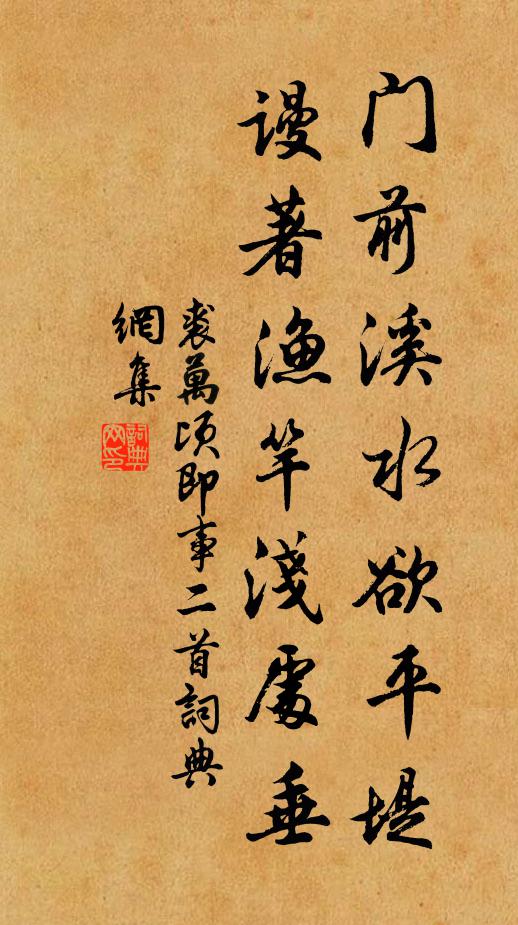 门前溪水欲平堤
谩著渔竿浅處垂
裘萬顷即事二首詞典
網集
詞典网印